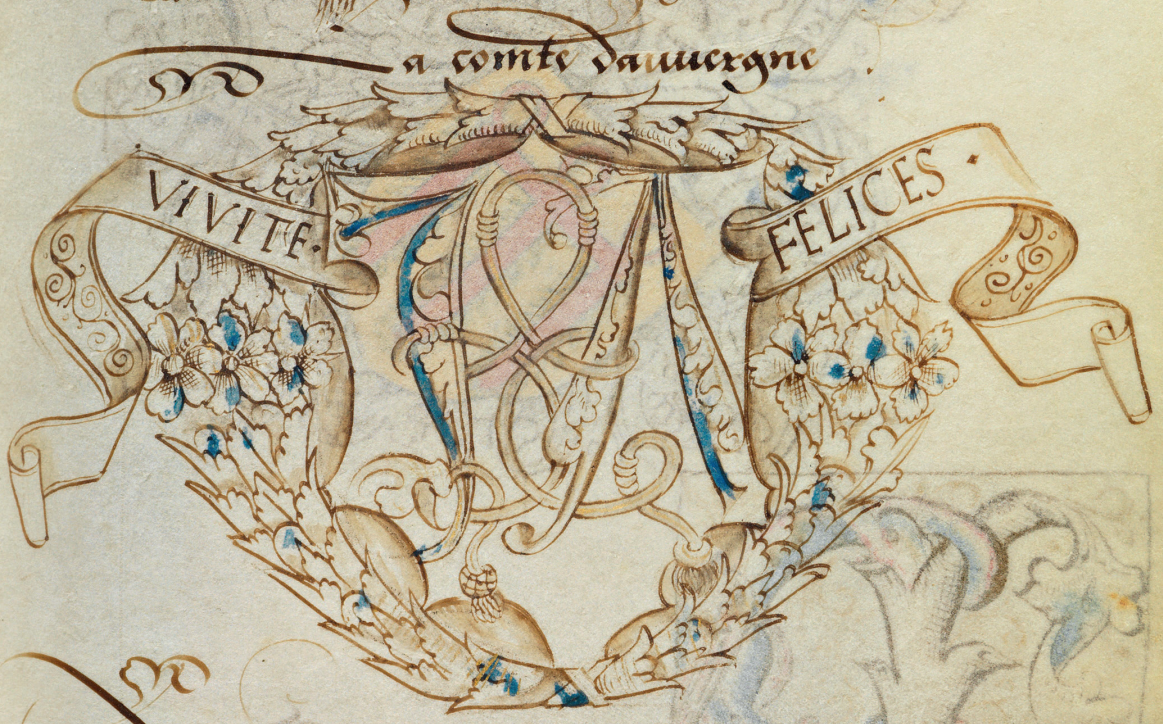 a comte dauuergne
VIVITE· FELICES ·